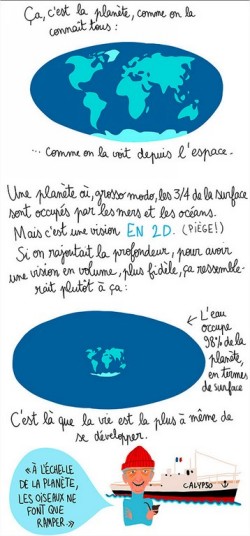 Ça, c'est la planète, comme on la
connaît tous :
... comme on la voit depuis l'espace.
Une planète où, grosso modo, les 3/4 de la surface
sont occupés par les mers et les océans.
Mais c'est une vision EN 2D. (PIÈGE!)
Si on rajoutait la profondeur, pour avoir
une vision en volume, plus fidèle, ça ressemble-
rait plutôt à ça :
L'eau
occupe
98% de la
planète,
en termes
de surface
C'est là que la vie est la plus à même de
se développer.
« À L'ÉCHELLE
DE LA PLANÈTE,
LES OISEAUX NE
FONT QUE
RAMPER. »
CALYPSO